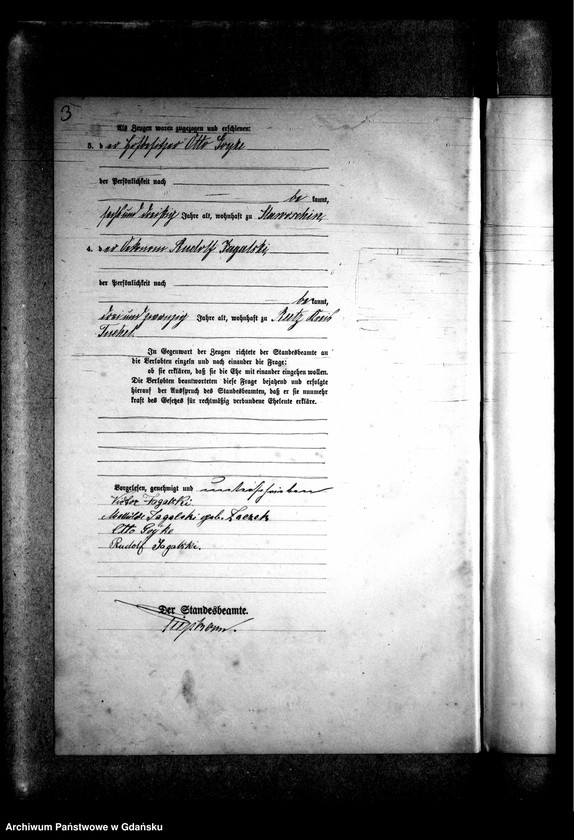 3
Als Zeugen waren zugezogen und erschienen:
3. der Hofbesitzer Otto Goyke
der Persönlichkeit nach
bekannt,
sechsund dreißig Jahre alt, wohnhaft zu
4. der Oekonom Rudolf Jagalski,
der Persönlichkeit nach
bekannt,
dreiundzwanzig Jahre alt, wohnhaft zu Reetz Kreis
Tuchel.
In Gegenwart der Zeugen richtete der Standesbeamte an
die Verlobten einzeln und nach einander die Frage:
ob sie erklären, daß sie die Ehe mit einander eingehen wollen.
Die Verlobten beantworteten diese Frage bejahend und erfolgte
hierauf der Ausspruch des Standesbeamten, daß er sie nunmehr
kraft des Gesetzes für rechtmäßig verbundene Eheleute erkläre.
Vorgelesen, genehmigt und unterschrieben
Victor Jagalski.
Mathilde Jagalski geb.
Otto Goyke
Rudolf Jagalski.
Der Standesbeamte.
Archiwum Państwowe w Gdańsku